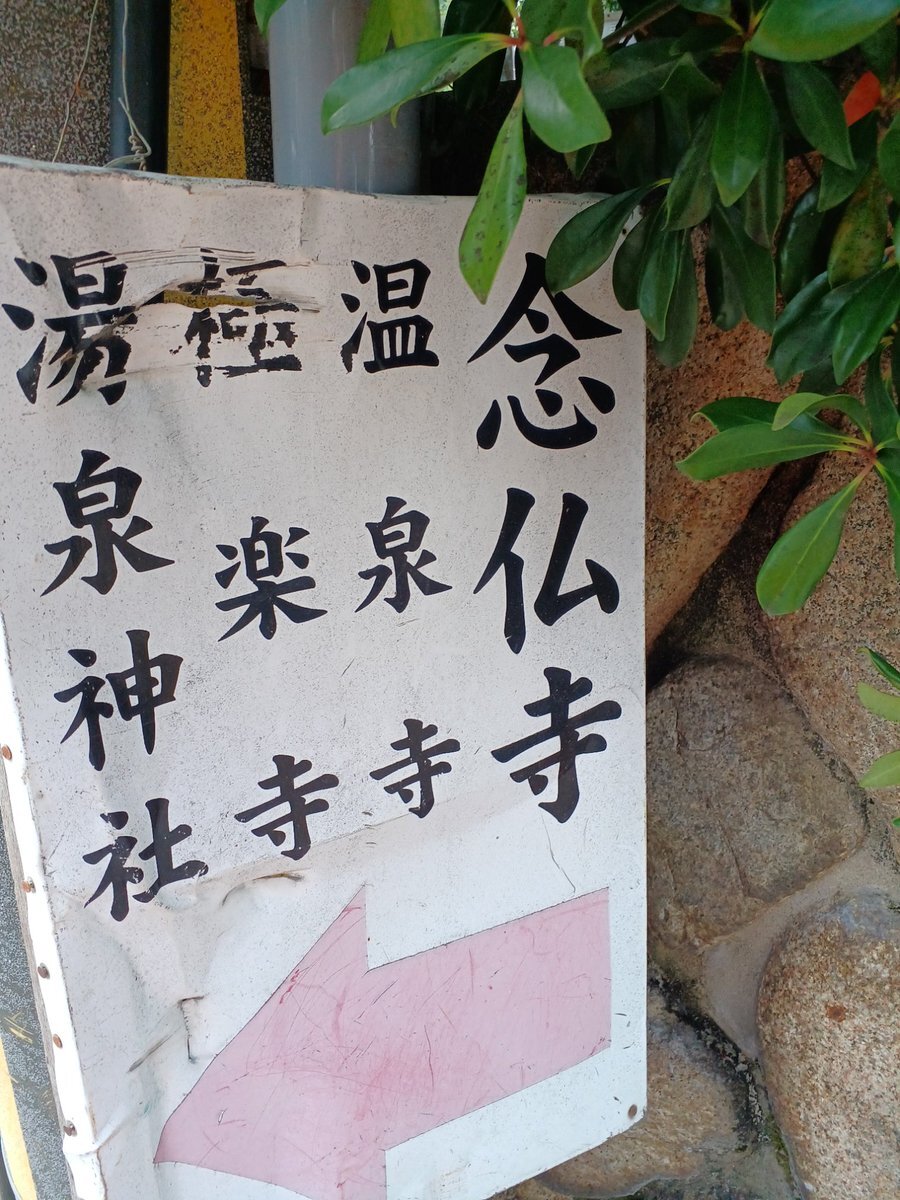 念仏寺
温泉寺
極楽寺
湯泉神社